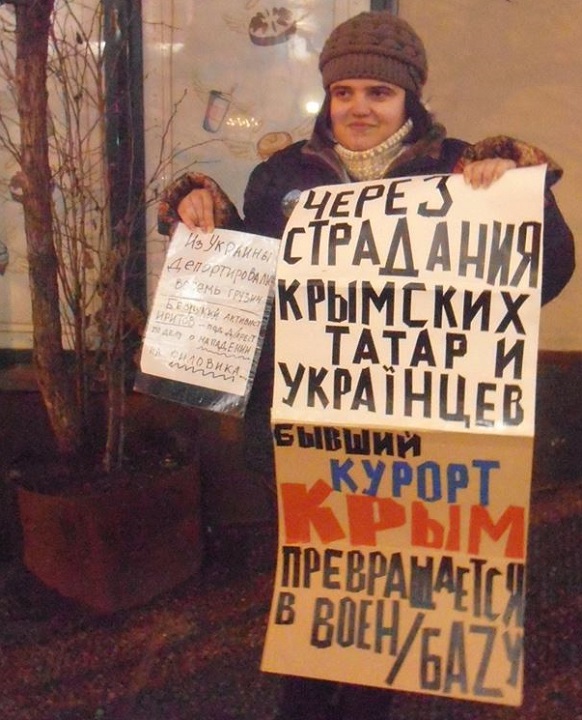 Из Украины
депортировали
восемь грузин.
активист
под домашн. арест
по делу о нападении
на силовика.
ЧЕРЕЗ
СТРАДАНИЯ
КРЫМСКИХ
ТАТАР И
УКРАЇНЦЕВ
БЫВШИЙ
КУРОРТ
КРЫМ
ПРЕВРАЩАЕТСЯ
В ВОЕН/БАZУ